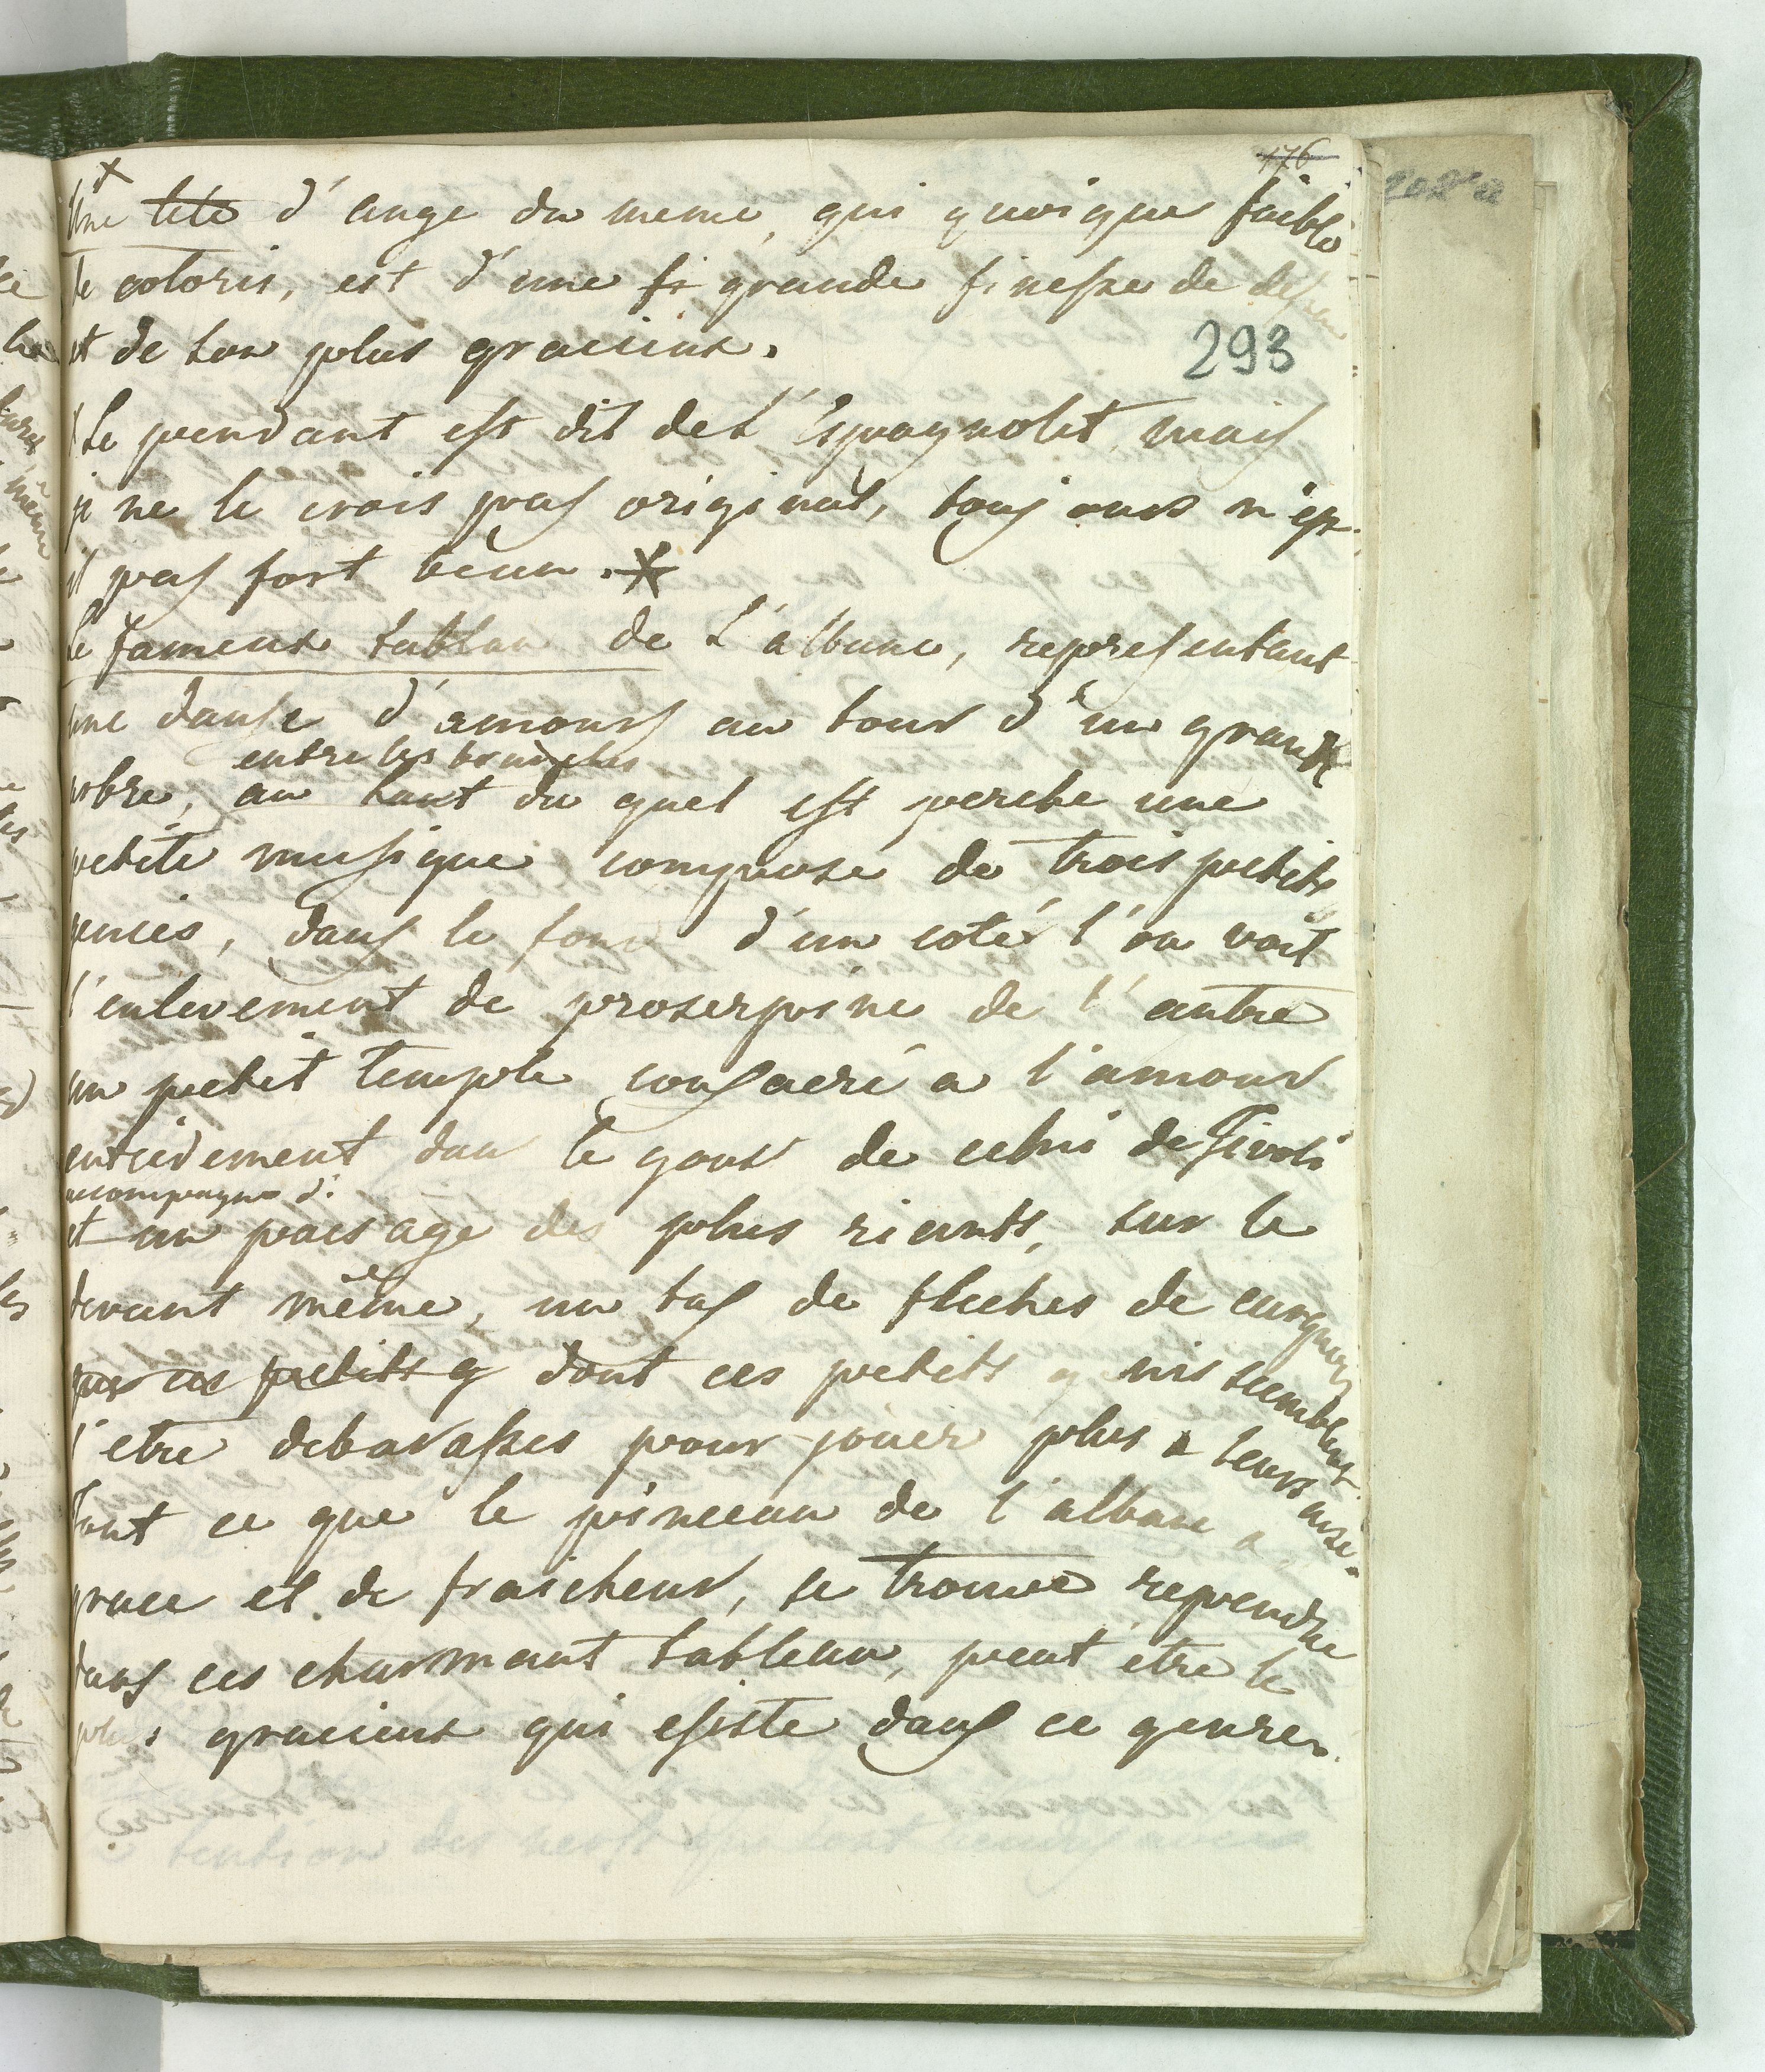 176
Une tete d'ange du meme, qui quoique faible
de coloris, est d'une si grande finesse de dessein
et de ton plus gracieux.
293
Le pendant est dit de L'Espagnolet, mais
je ne le crois pas original, toujours n'est
il pas fort beau. *
Le fameux tableau de L'albane, representant
une danse d'amours au tour d'un grand
entre les branches
arbre, au haut du quel est perche une
petite musique compose de trois petits
genies, dans le fond d'un coté l'on voit
l'enlevement de proserpine de l'autre
un petit temple consacré a l'amour
entierement dans le gout de celui de Tivoli
accompagne d'
et un paisage des plus riants, sur le
devant même, un tas de fleches de carquois
par ces petits g dont ces petits genies semblent
s'etre debarasses pour jouer plus a leurs aise.
Tout ce que le pinceau de l'albane a
grace et de fraicheur, se trouve rependue
dans ces charmant tableau, peut etre le
plus gracieux qui esiste dans ce genre.